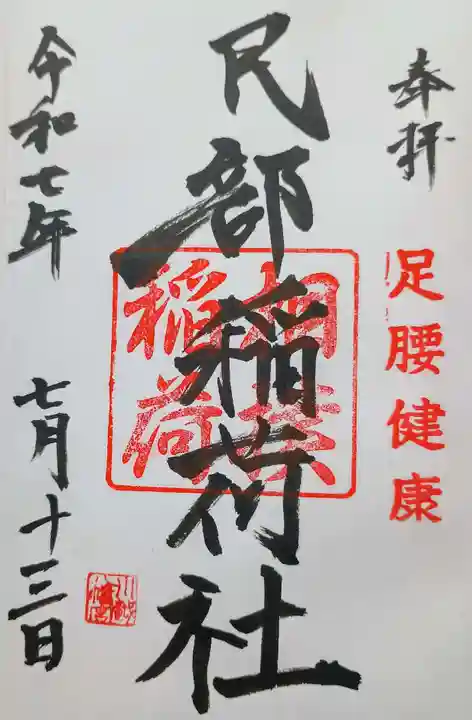 奉拝
足腰健康
民部稲荷社
稲荷
令和七年
七月十三日